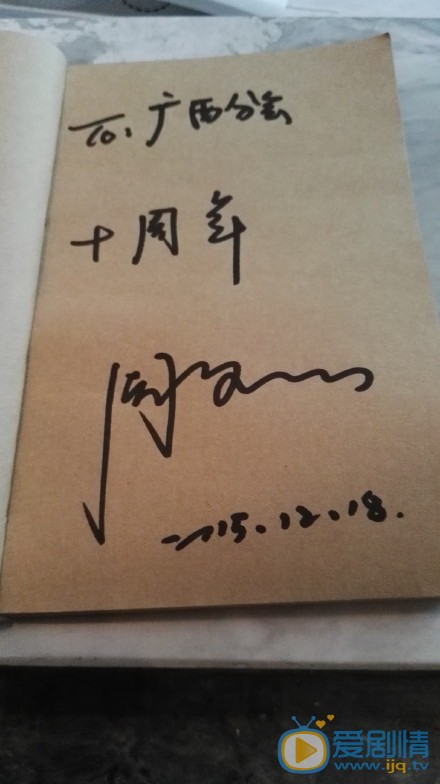 To: 广西分会
十周年
周
2015.12.18.
爱剧情
www.ijq.tv